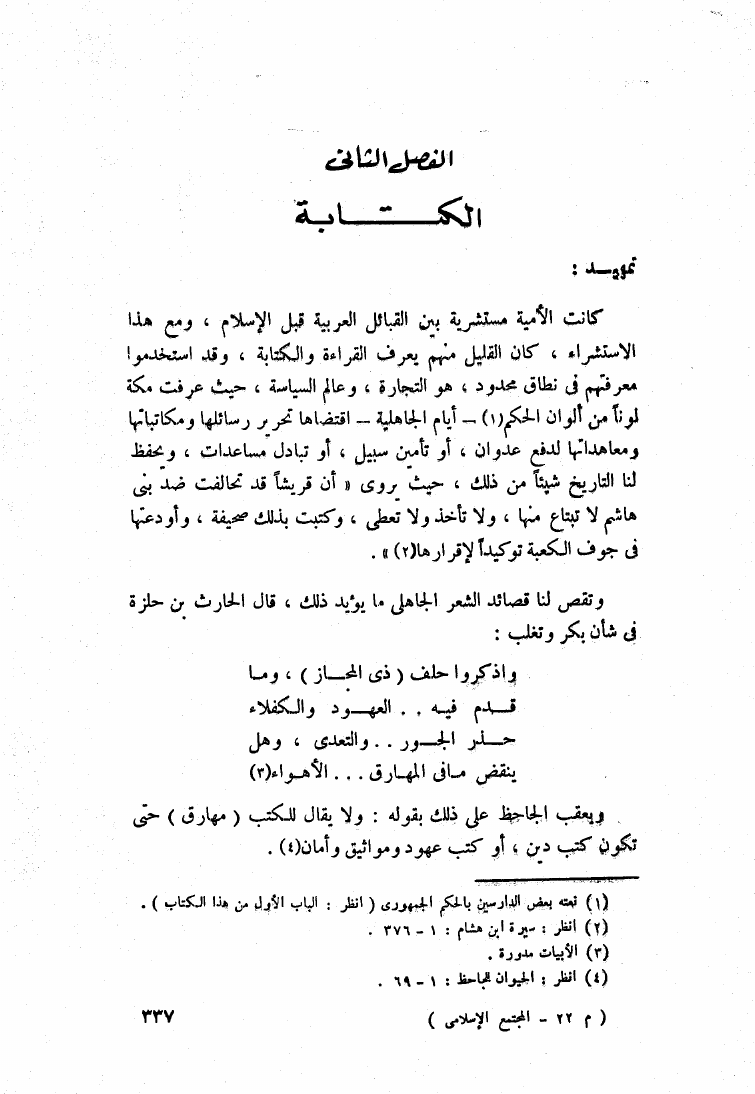 الفصل الثانى
الكتـــابة
تمهيــد :
كانت الأمية مستشرية بين القبائل العربية قبل الإسلام ، ومع هذا
الاستشراء ، كان القليل منهم يعرف القراءة والكتابة ، وقد استخدموا
معرفتهم فى نطاق محدود ، هو التجارة ، وعالم السياسة ، حيث عرفت مكة
لوناً من ألوان الحكم(١) ــ أيام الجاهلية ــ اقتضاها تحرير رسائلها ومكاتباتها
ومعاهداتها لدفع عدوان ، أو تأمين سبيل ، أو تبادل مساعدات ، ويحفظ
لنا التاريخ شيئاً من ذلك ، حيث يروى « أن قريشاً قد تحالفت ضد بنى
هاشم لا تبتاع منها ، ولا تأخذ ولا تعطى ، وكتبت بذلك صحيفة ، وأودعتها
فى جوف الكعبة توكيداً لإقرارها(٢) » .
وتقص لنا قصائد الشعر الجاهلى ما يؤيد ذلك ، قال الحارث بن حلزة
فى شأن بكر وتغلب :
واذكروا حلف ( ذى المجــاز ) ، ومـا
قــدم فيــه . . العهــود والكفلاء
حــذر الجــور . . والتعدى ، وهل
ينقض مـافى المهـارق . . . الأهـواء(٣)
ويعقب الجاحظ على ذلك بقوله : ولا يقال للكتب ( مهارق ) حتى
تكون كتب دين ، أو كتب عهود ومواثيق وأمان(٤) .
(١) نعته بعض الدارسين بالحكم الجمهورى ( انظر : الباب الأول من هذا الكتاب ) .
(٢) انظر : سيرة ابن هشام : ١ ــ ٣٧٦ .
(٣) الأبيات مدورة .
(٤) انظر : الحيوان للجاحظ : ١ ــ ٦٩ .
( م ٢٢ ــ المجتمع الإسلامى ) ٣٣٧